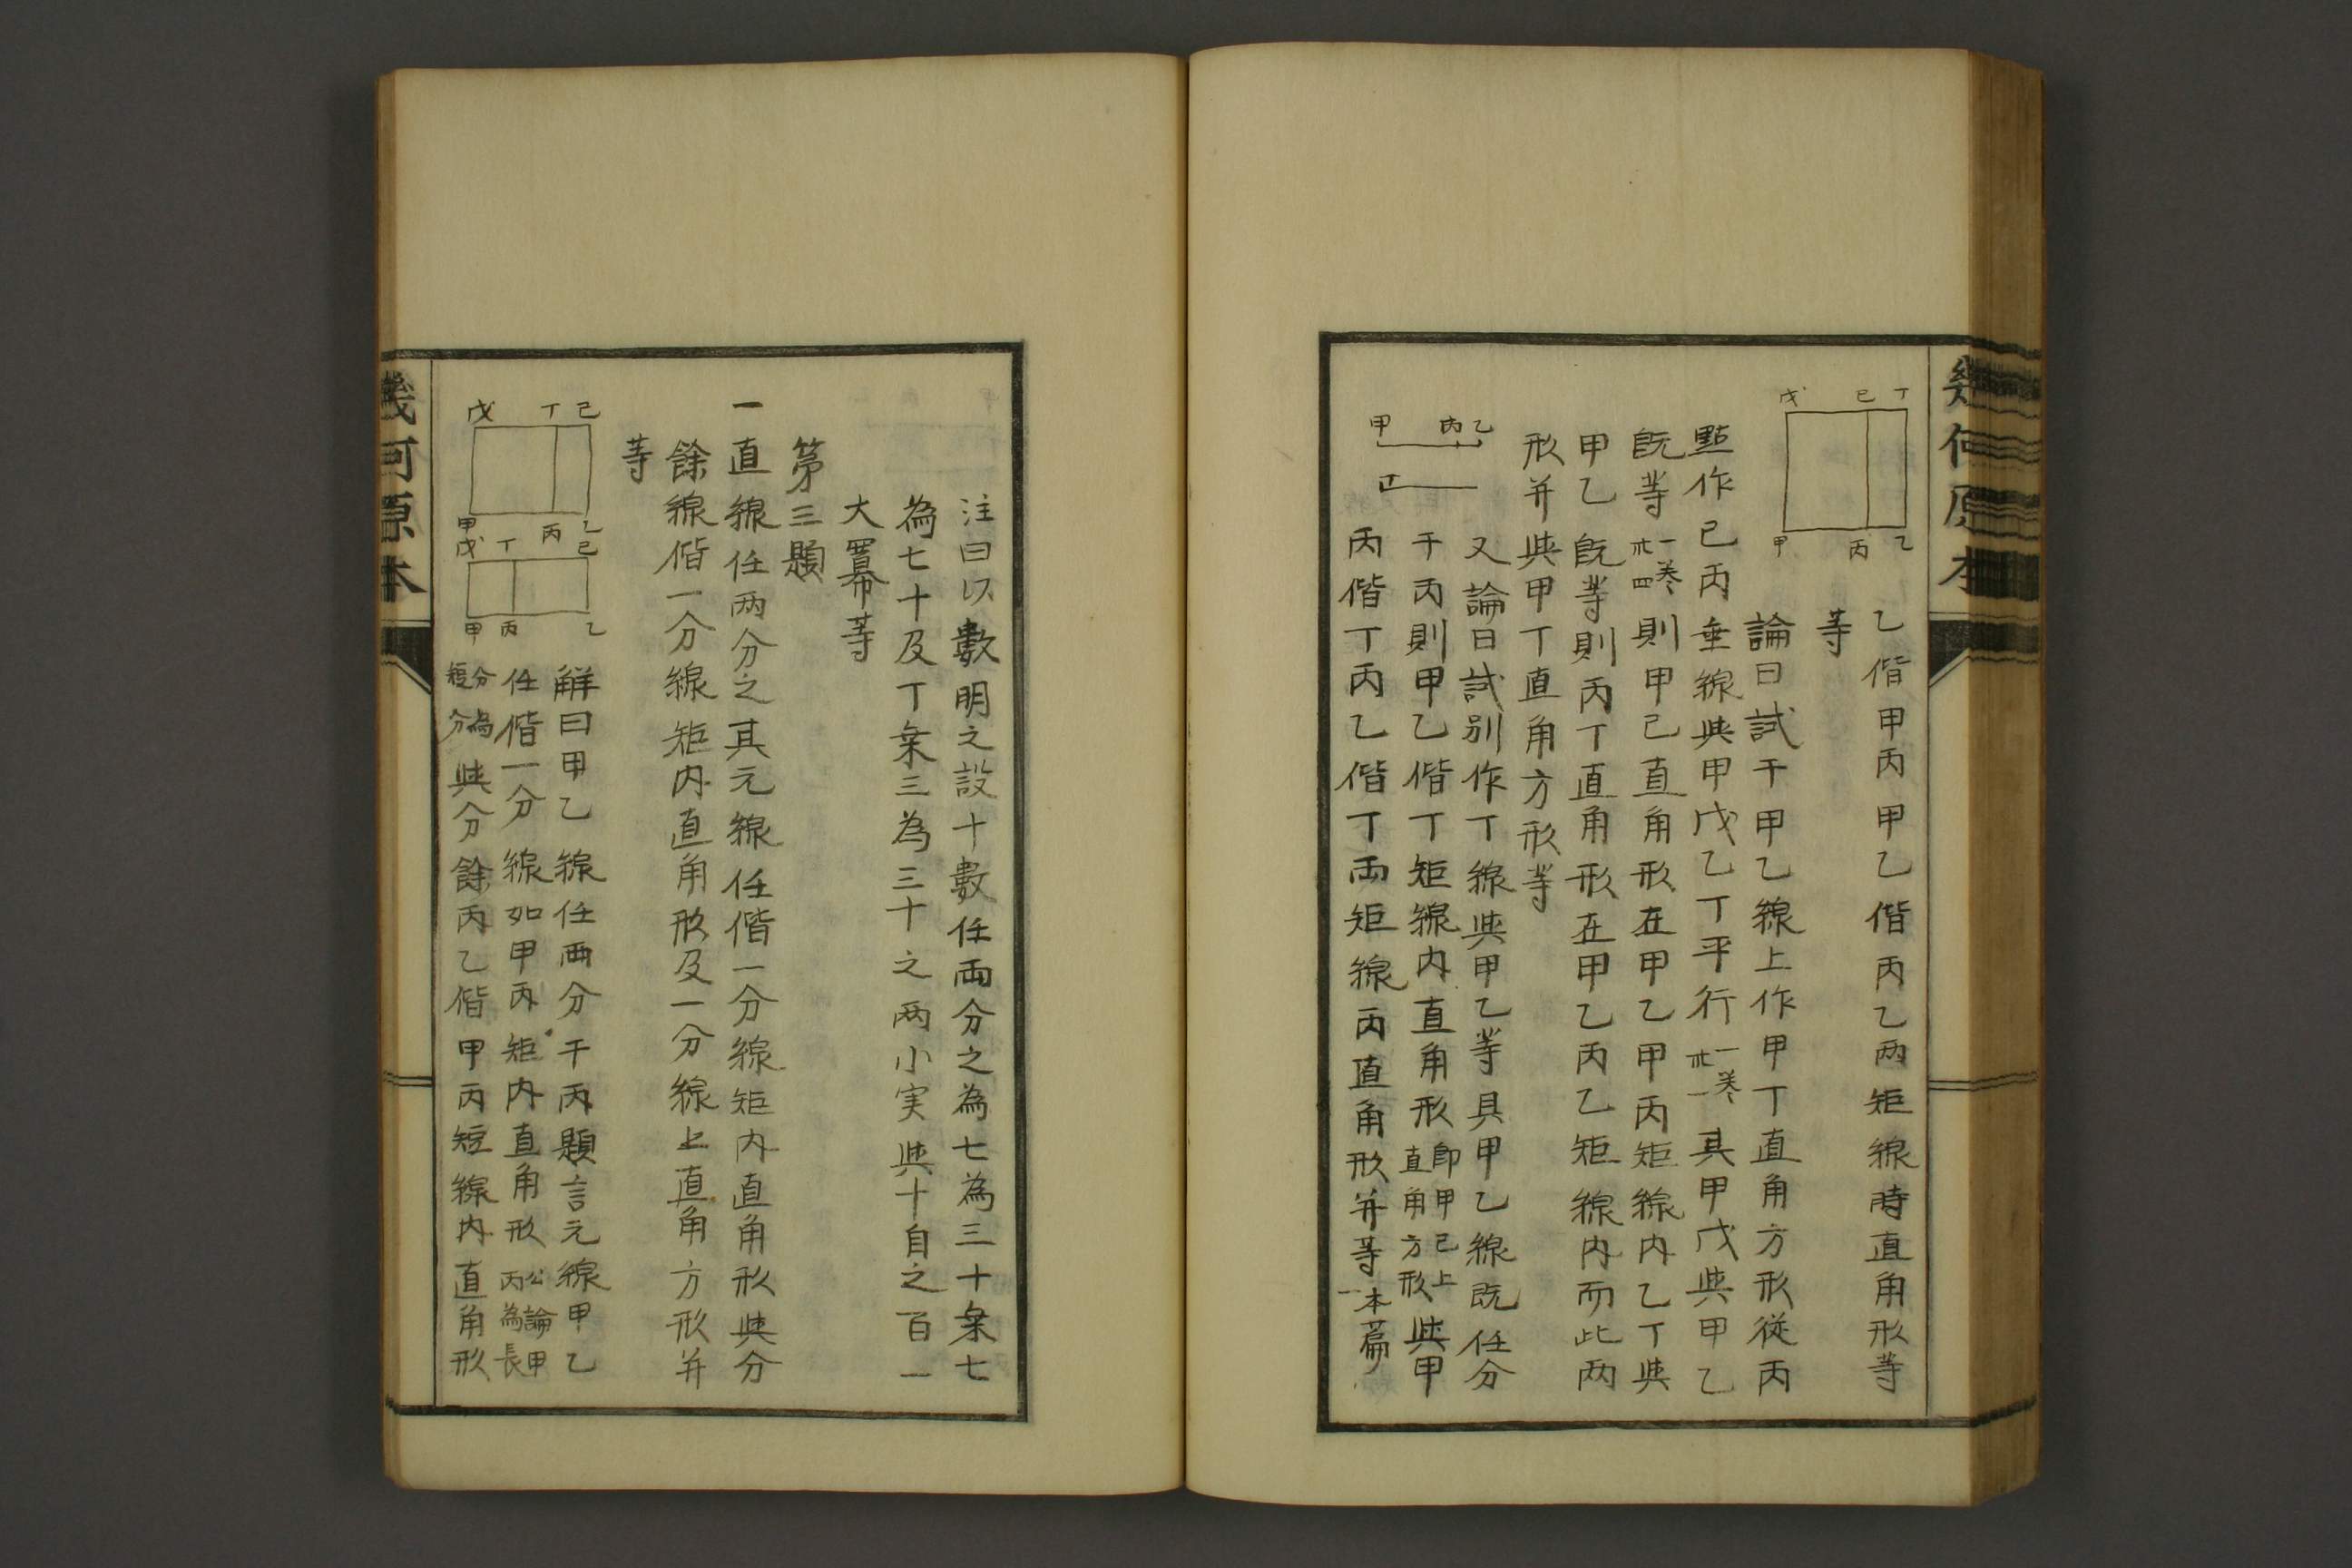 幾何原本
丁
己
戊
乙
丙
甲
乙偕甲丙甲乙偕丙乙两矩線時直角形等
等
論曰試于甲乙線上作甲丁直角方形從丙
點作己丙垂線與甲戊乙丁平行一卷卅一其甲戊與甲乙
既等一卷卅四則甲己直角形在甲乙甲丙矩線内乙丁與
甲乙既等則丙丁直角形在甲乙丙乙矩線内而此两
形并與甲丁直角方形等
乙
丙
甲
丁
又論曰試别作丁線與甲乙等具甲乙線既任分
于丙則甲乙偕丁矩線内直角形即甲己上直角方形與甲
丙偕丁丙乙偕丁兩矩線丙直角形并等本篇一
注曰以數明之設十數任兩分之為七為三十乗七
為七十及丁乗三為三十之两小実與十自之百一
大羃等
第三題
一直線任两分之其元線任偕一分線矩内直角形與分
餘線偕一分線矩内直角形及一分線上直角方形并
等
己
丁
戊
乙
丙
甲
己
丁
戊
乙
丙
甲
解曰甲乙線任两分于丙題言元線甲乙
任偕一分線如甲丙矩内直角形公論甲丙為長
分為短分與分餘丙乙偕甲丙短線内直角形
幾何原本